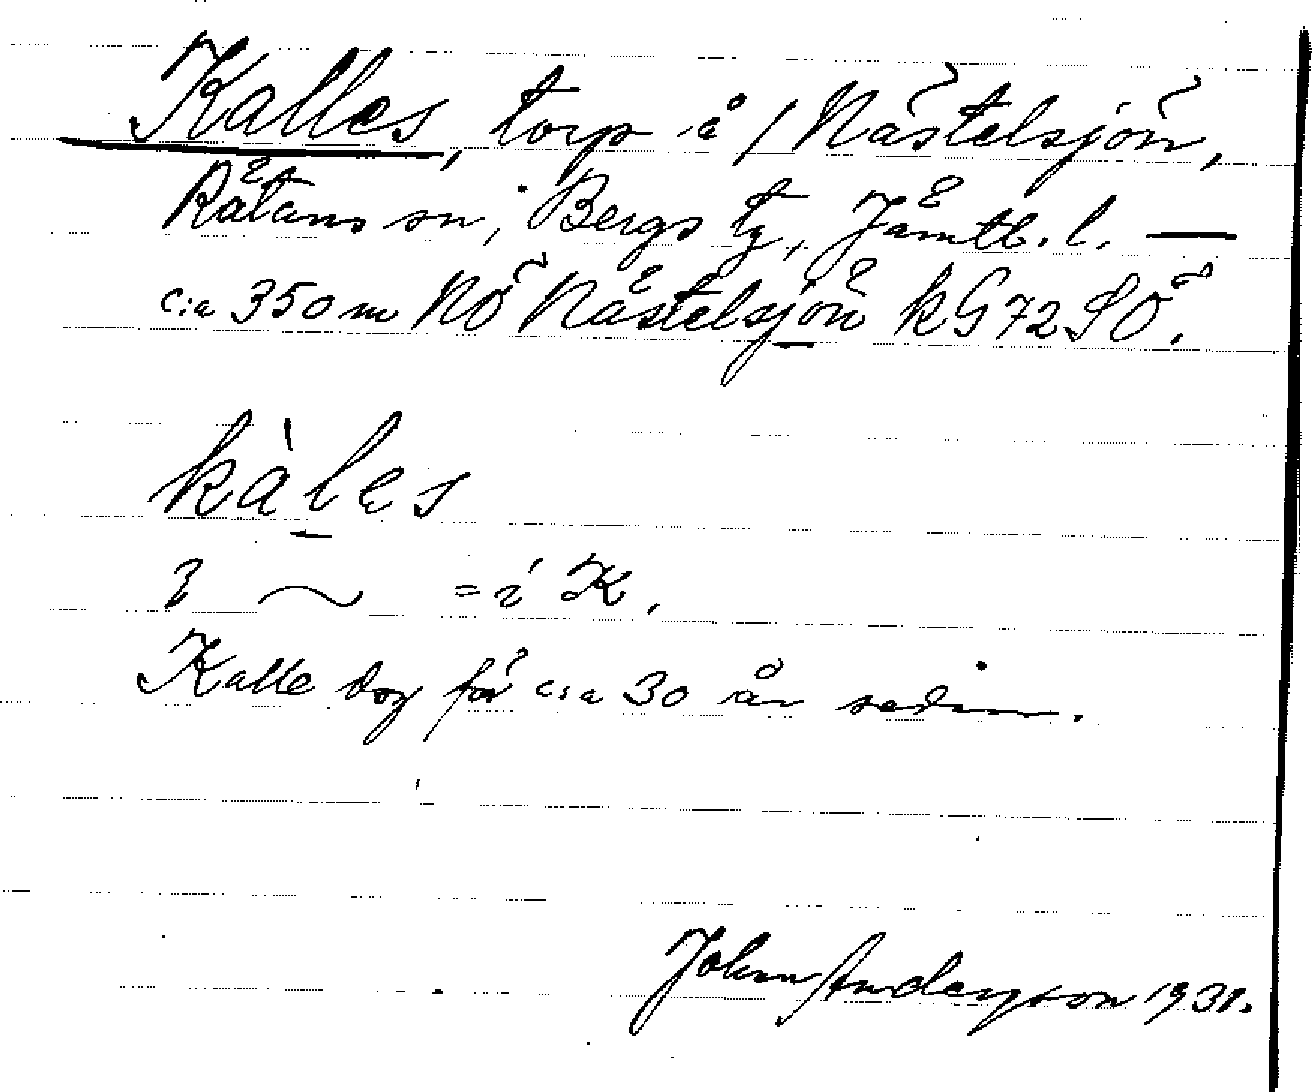 Kalles, torp å /Nästelsjön,
Rätans sn, Bergs tg, Jämtl. l. —
c:a 350 m NÖ Nästelsjön kG 72 SÖ.
kàles
i ~ = i K.
Kalle dog för c:a 30 år sedan.
John Anderson 1931.